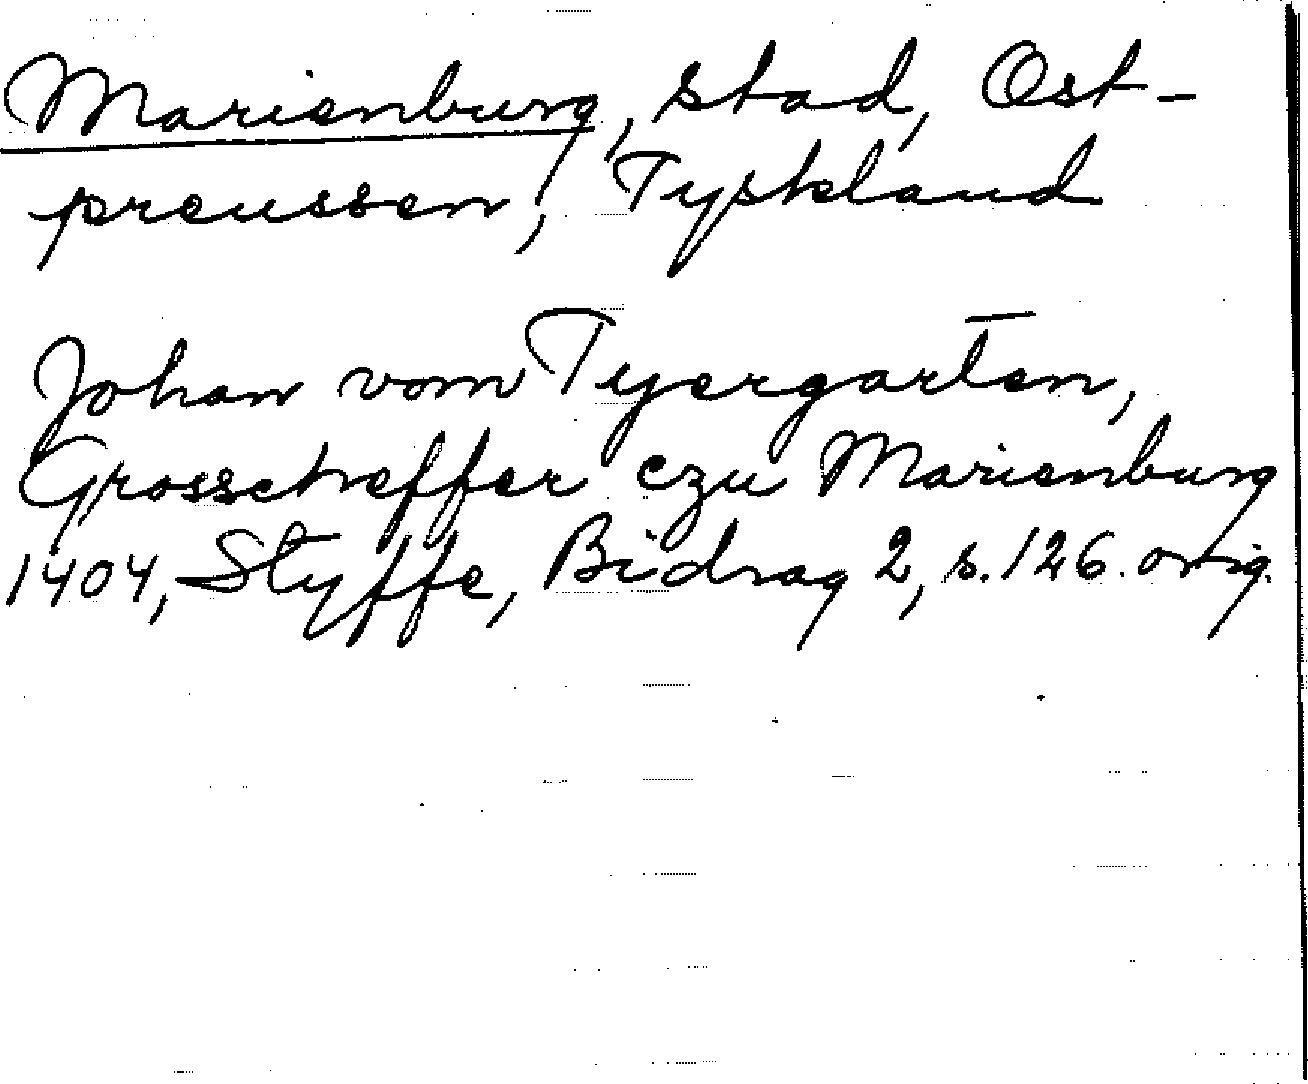 Marienburg, stad, Ost-
preussen, Tyskland
Johan vom Tyergarten,
Grosscheffer czu Marienburg
1404, Styffe, Bidrag 2, s. 126. orig.